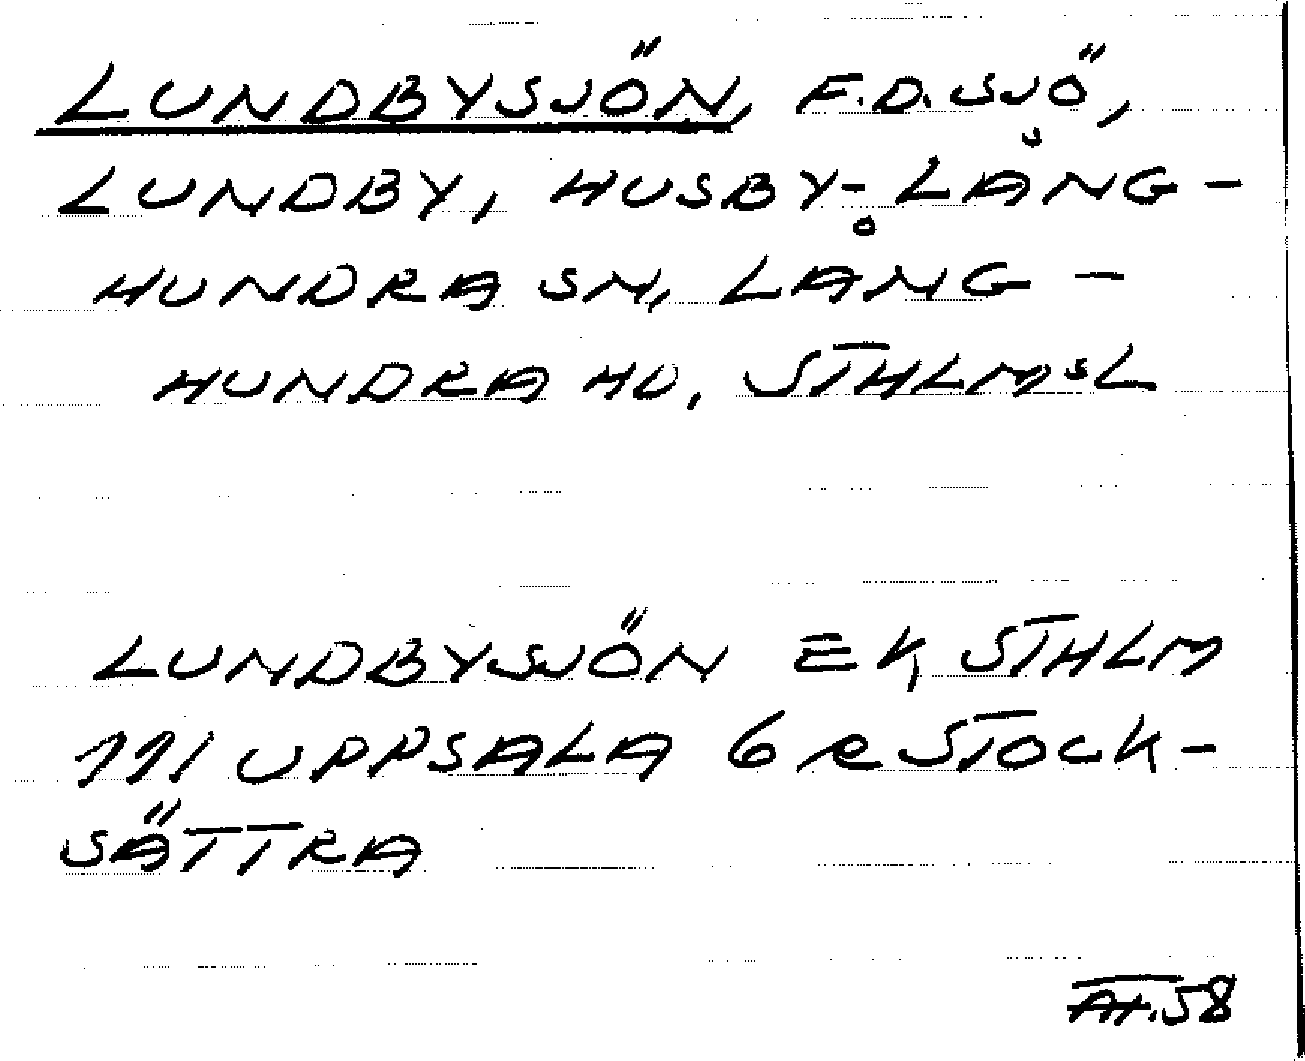 LUNDBYSJÖN, F.D. SJÖ,
LUNDBY, HUSBY-LÅNG-
HUNDRA SN, LÅNG-
HUNDRA HD, STHLMSL
LUNDBYSJÖN EK, STHLM
111 UPPSALA 6 e STOCK-
SÄTTRA